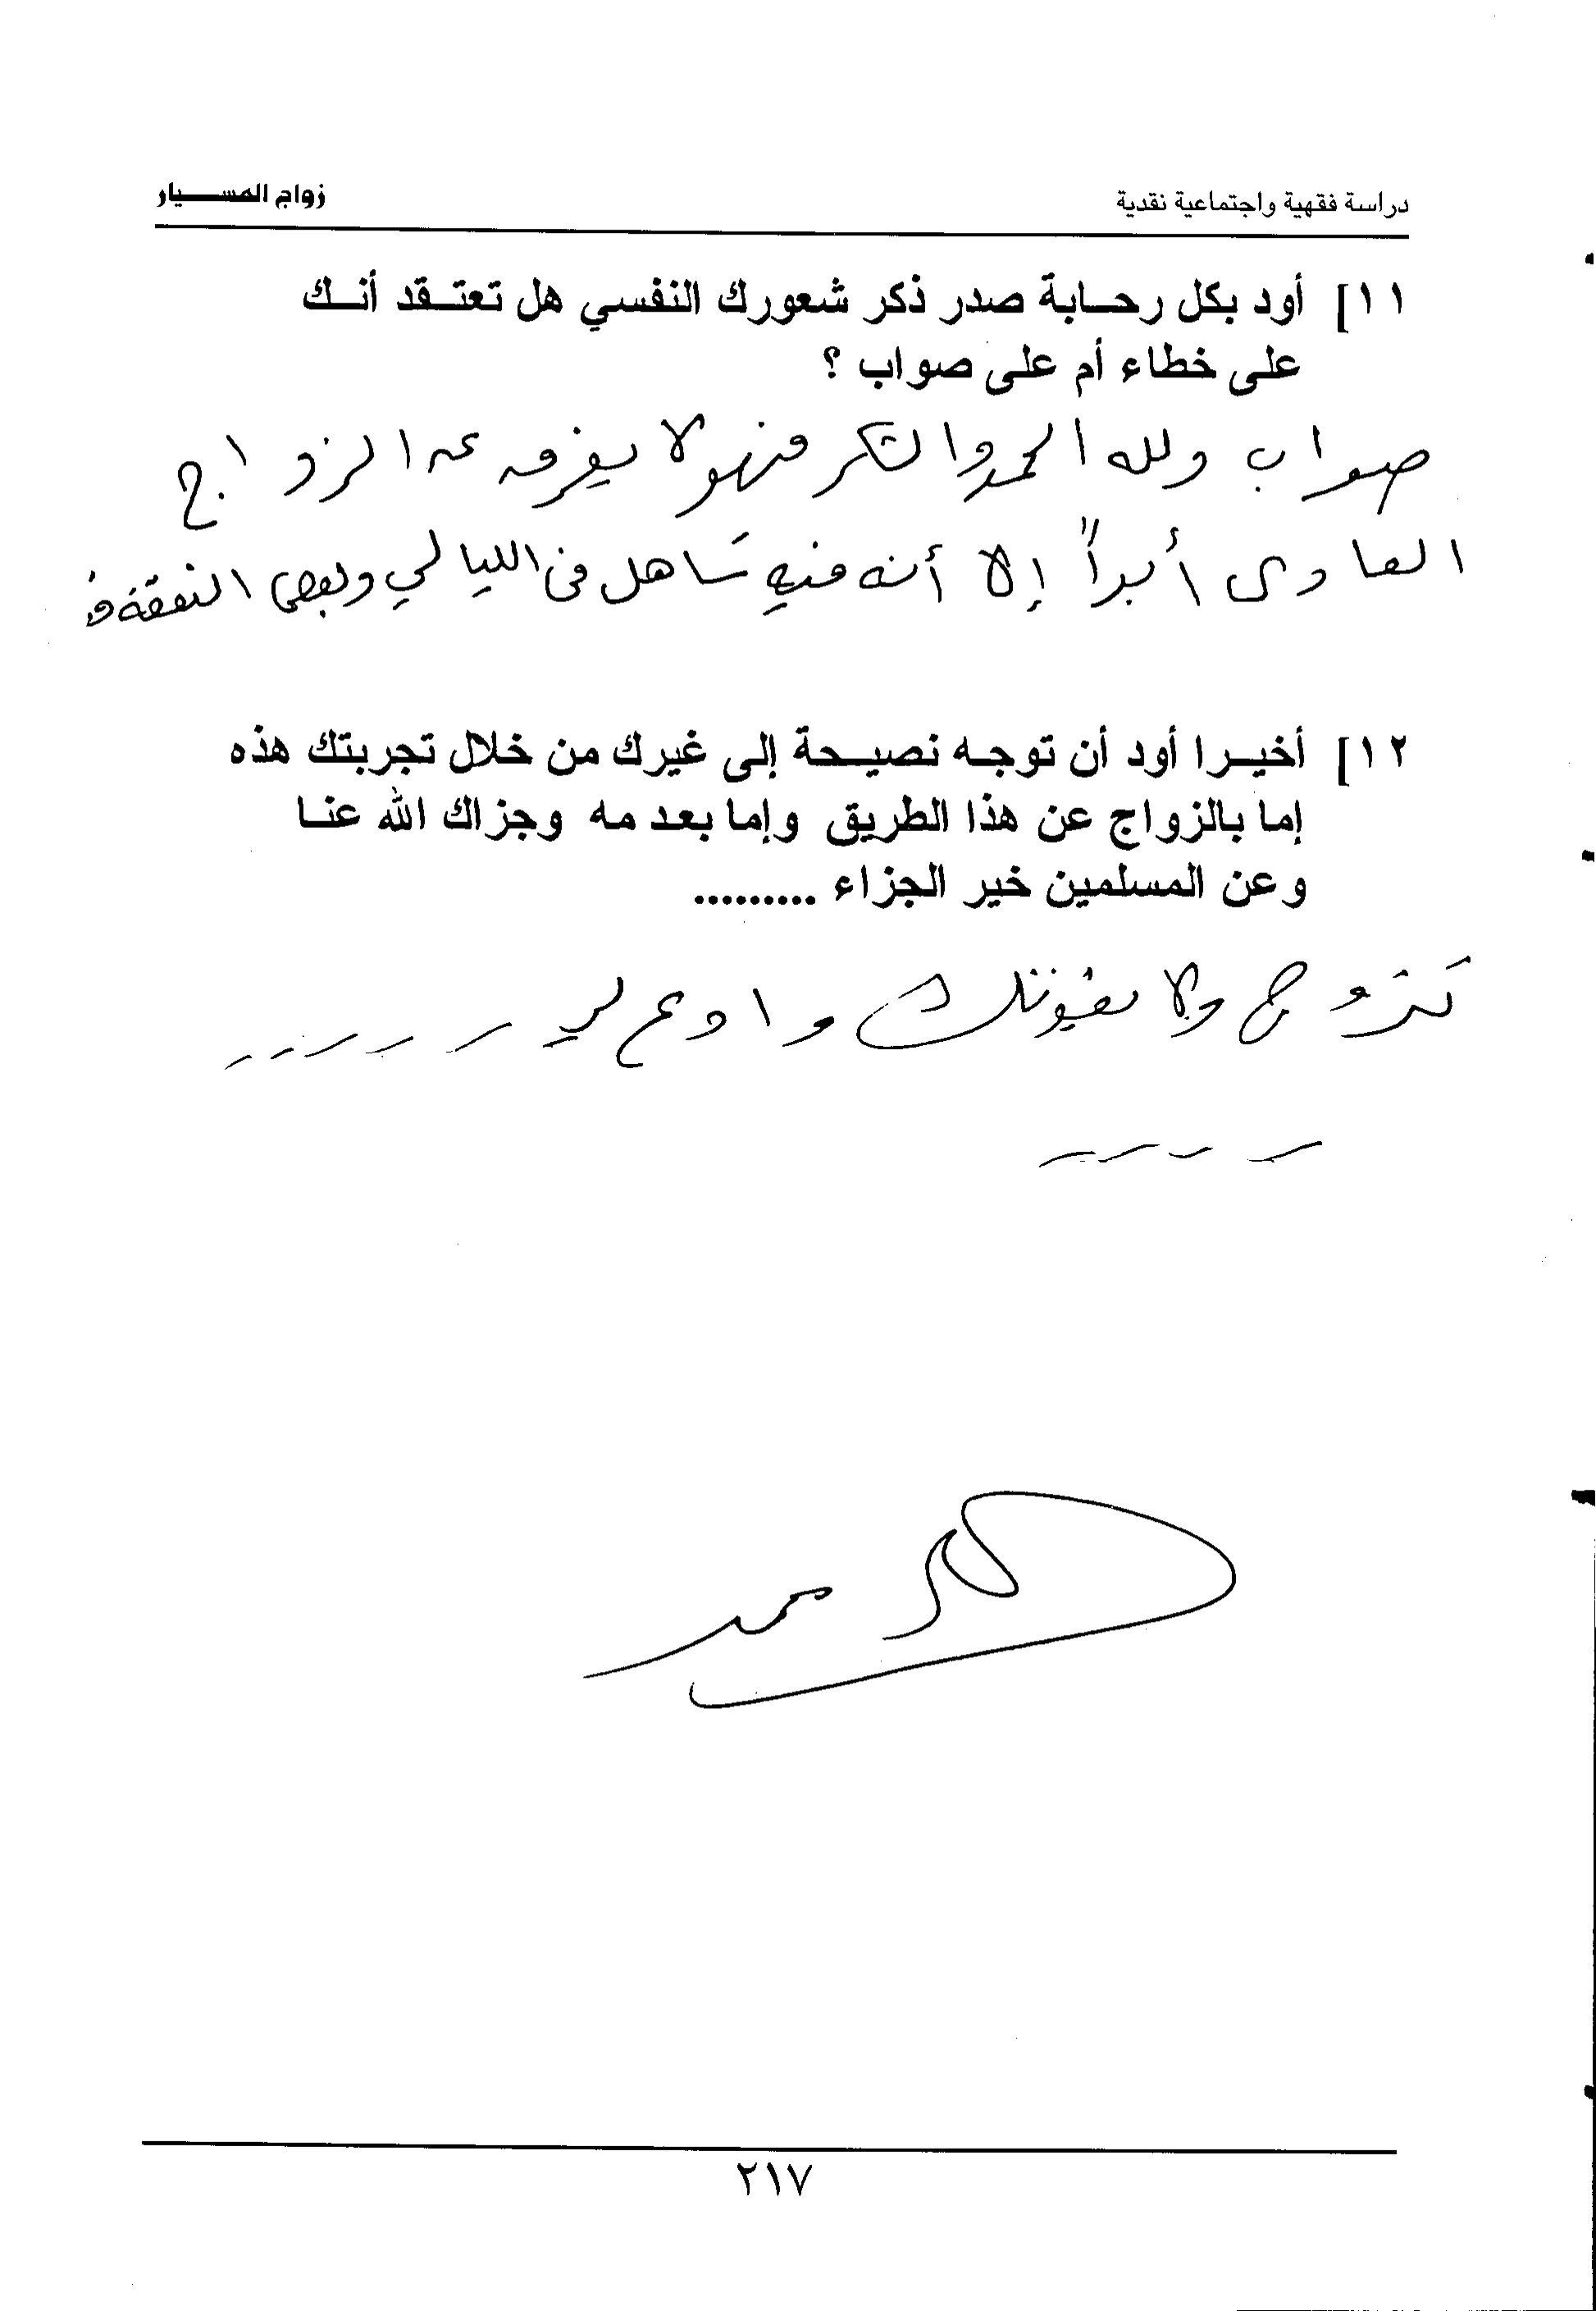 دراسة فقهية واجتماعية نقدية زواج المسيار
١١] أود بكل رحابة صدر ذكر شعورك النفسي هل تعتقد أنك
على خطاء أم على صواب ؟
صواب ولله الحمد والشكر فهو لا يفرق عن الزواج
العادى أبداً إلا أنه فيه تساهل فى الليالي وبعض النفقة
١٢] أخيرا أود أن توجه نصيحة إلى غيرك من خلال تجربتك هذه
إما بالزواج عن هذا الطريق وإما بعد مه وجزاك الله عنا
وعن المسلمين خير الجزاء .........
تزوج ولا يفوتك وادع لي
٢١٧